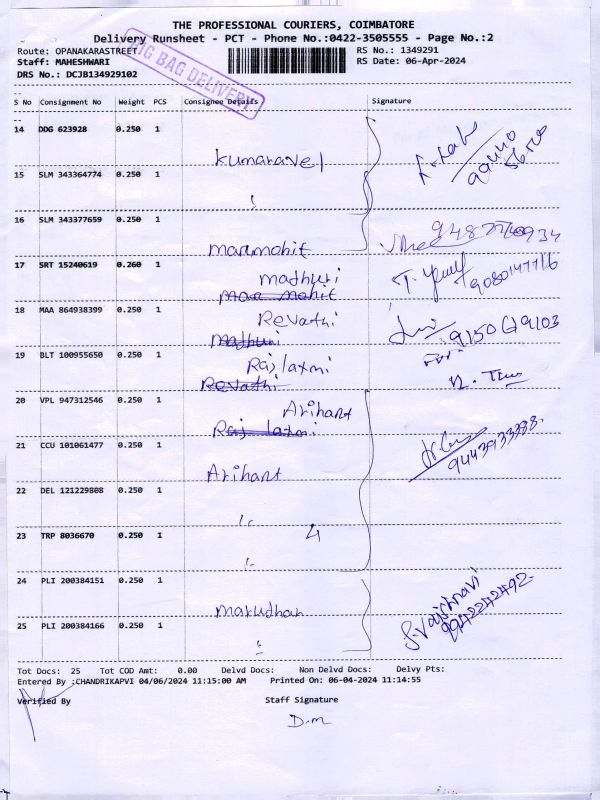 THE PROFESSIONAL COURIERS, COIMBATORE
Delivery Runsheet - PCT - Phone No.:0422-3505555 - Page No.:2
Route: OPANAKARASTREET/
RS No.: 1349291
Staff: MAHESHWARI
RS Date: 06-Apr-2024
DRS No.: DCJB134929102
BAG DELIVERY
S No Consignment No Weight PCS Consignee Details Signature
14 DDG 623928 0.250 1
kumaravel
15 SLM 343364774 0.250 1
99440
56500
16 SLM 343377659 0.250 1
marumohit
17 SRT 15240619 0.260 1
madhuri
mar mohit
T.
18 MAA 864938399 0.250 1
Revathi
madhuri
19 BLT 100955650 0.250 1
Raj laxmi
Revathi
20 VPL 947312546 0.250 1
Arihant
Raj laxmi
21 CCU 101061477 0.250 1
Arihant
9443933388.
22 DEL 121229808 0.250 1
23 TRP 8036670 0.250 1
4
24 PLI 200384151 0.250 1
marudhar
S. Vaishnavi
9942242492.
25 PLI 200384166 0.250 1
Tot Docs: 25 Tot COD Amt: 0.00 Delvd Docs: Non Delvd Docs: Delvy Pts:
Entered By :CHANDRIKAPVI 04/06/2024 11:15:00 AM Printed On: 06-04-2024 11:14:55
Verified By Staff Signature
D.m